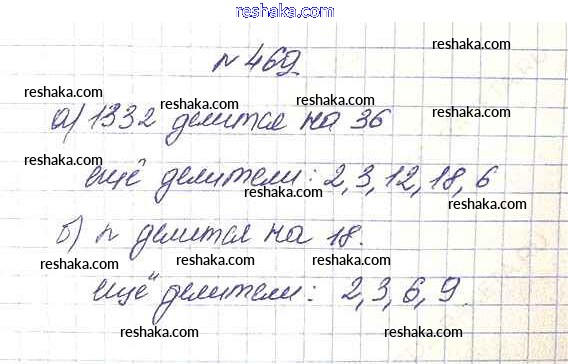 www.reshaka.com
№ 469
reshaka.com
reshaka.com
reshaka.com
reshaka.com
reshaka.com
а) 1332 делится на 36
reshaka.com
reshaka.com
ещё делители: 2, 3, 12, 18, 6
reshaka.com
reshaka.com
б) n делится на 18.
reshaka.com
reshaka.com
reshaka.com
ещё делители: 2, 3, 6, 9.
reshaka.com
reshaka.com